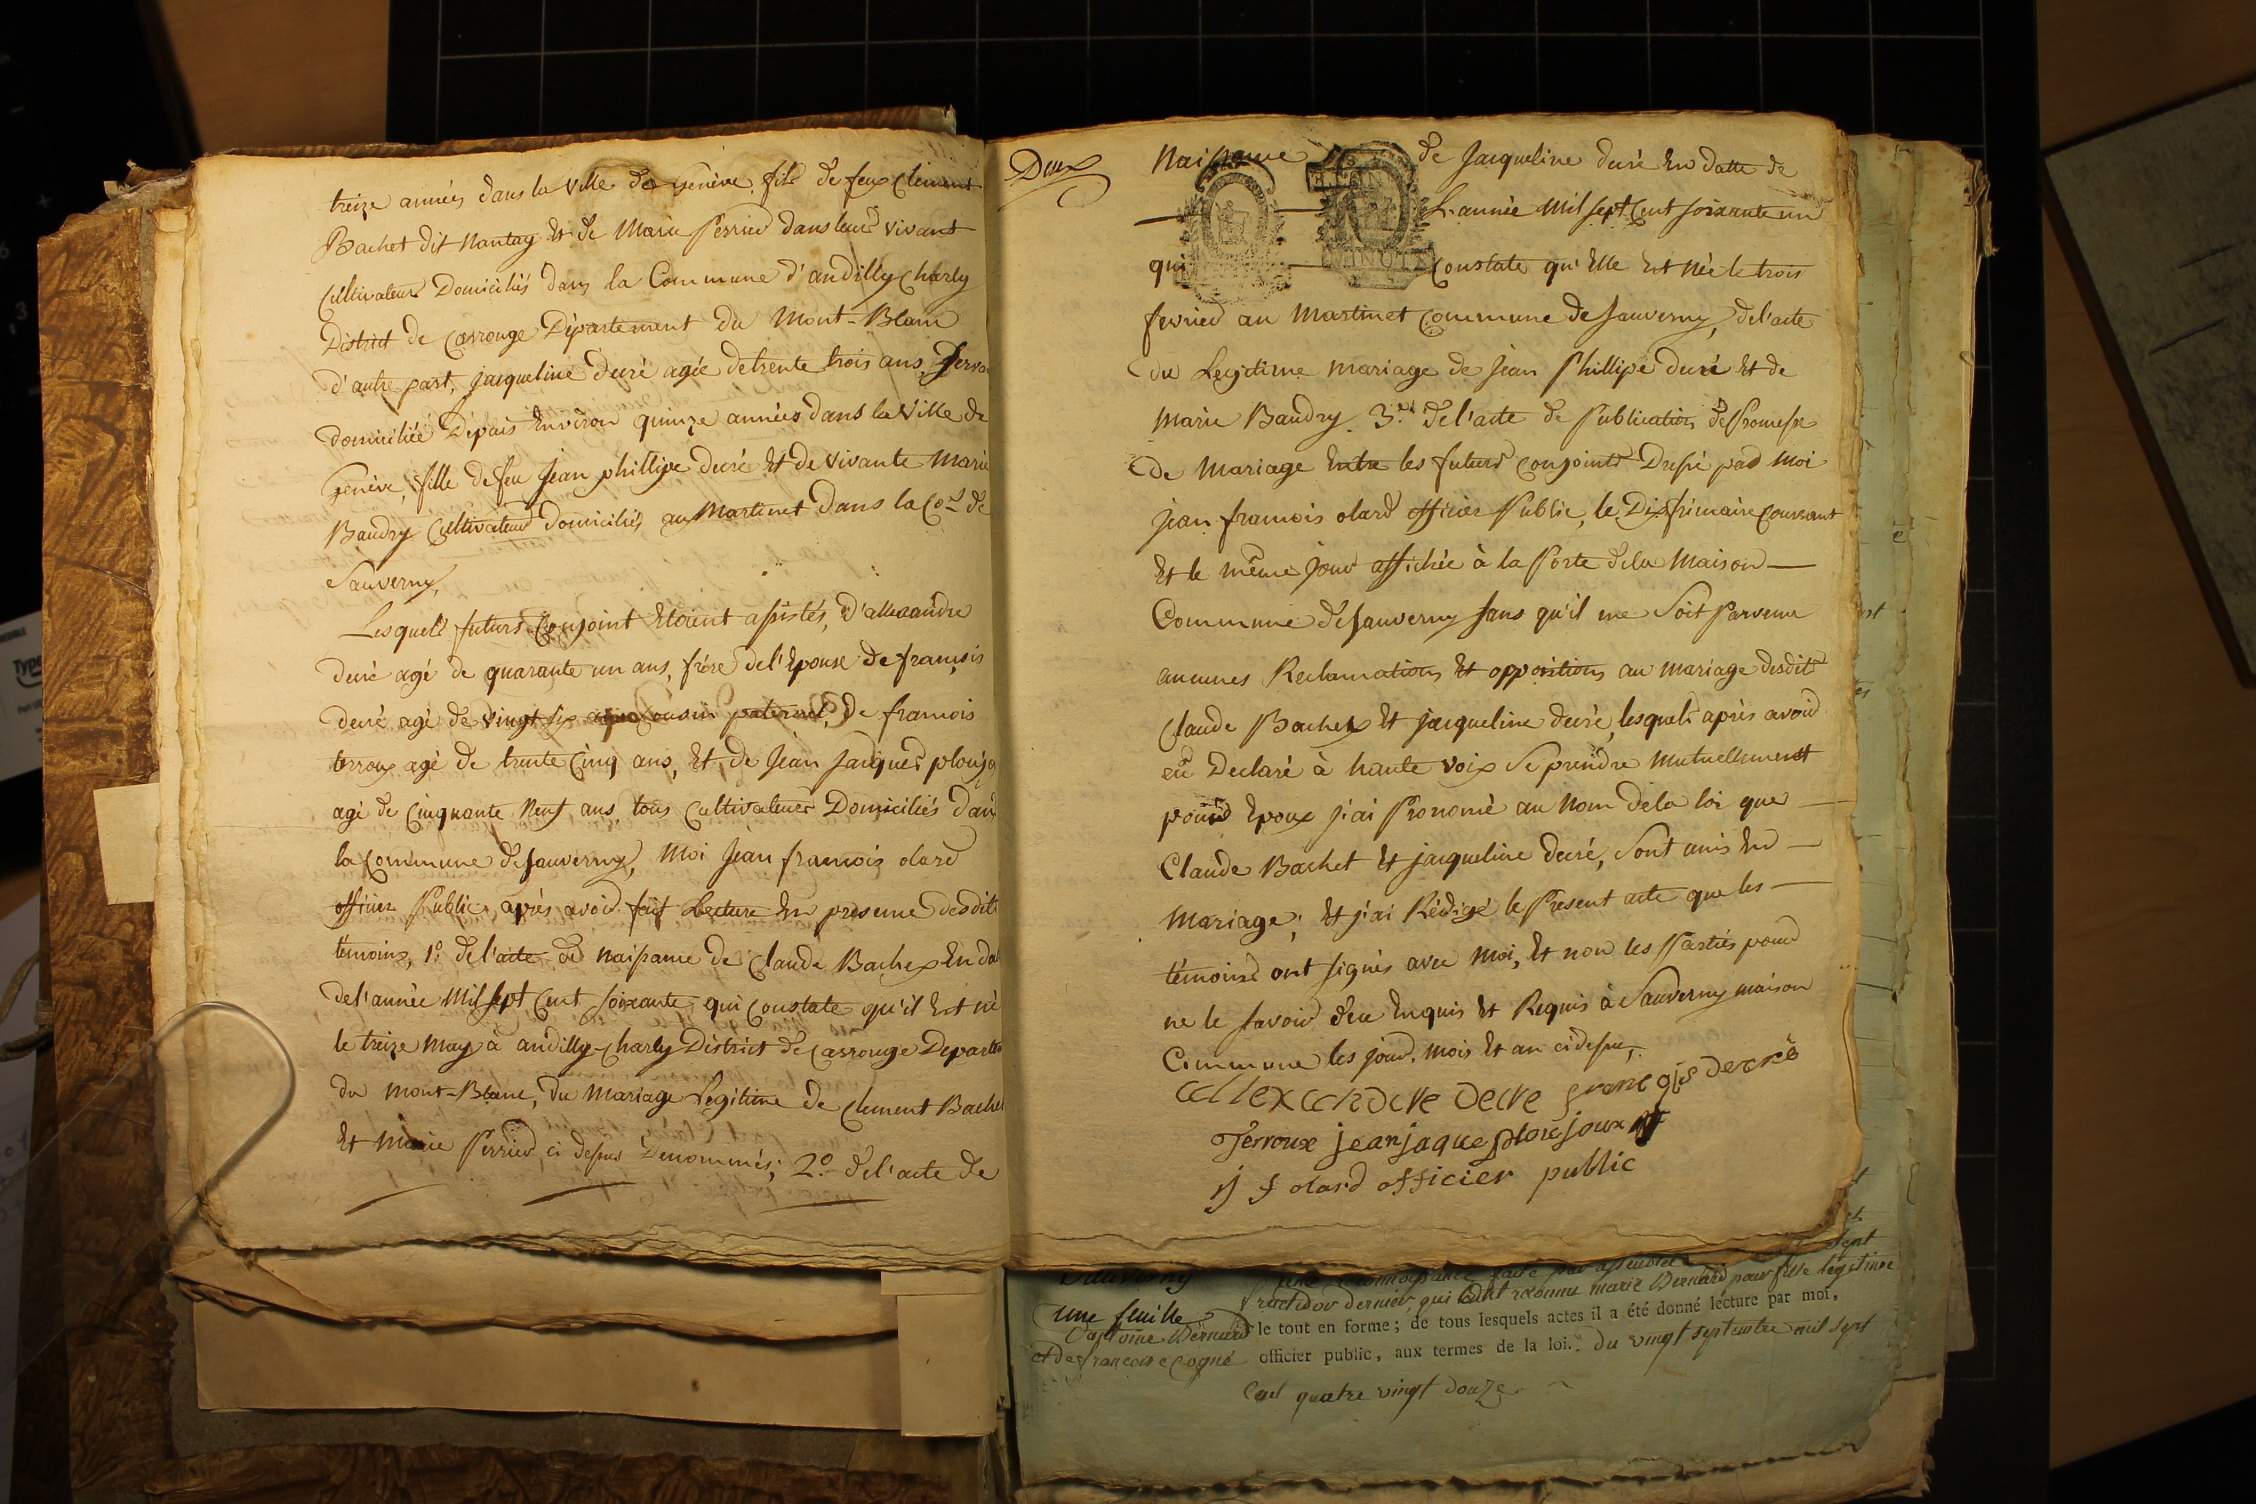 treize années dans la ville de genève, fils de feux Clément
Bachet dit Nantay et de Marie Perrier dans leurs vivant
Cultivateurs Domiciliés dans la Commune d'andilly Charly
District de Carrouge Département du Mont-Blanc
d'autre part, jacqueline decré agée de trente trois ans, Serva
domiciliée Dépuis Environ quinze années dans la Ville de
Genève, fille de feu Jean phillipe decré Et de vivante Marie
Baudry Cultivateurs domiciliés au Martinet dans la Co.e de
Sauverny,
Lesquels futurs Conjoint Etoient assistés, d'allexandre
decré agé de quarante un ans, frère de l'Epouse de françois
decré agé de vingt six Cousin paternel, de francois
terroux agé de trente Cinq ans, Et de Jean Jacques plonjo
agé de Cinquante Neuf ans, tous Cultivateurs Domiciliés dans
la Commune de Sauverny, Moi Jean francois olard
officier Public, après avoir fait Lecture En presence desdits
témoins, 1.° de l'acte de naissance de Claude Bachex En da
de l'année Mil sept Cent soixante qui Constate qu'il Est né
le treize May à andilly-Charly District de Carrouge Departem
du Mont-Blanc, du Mariage Légitime de Clement Bachet
Et Marie Perrier, ci dessus Denommés; 2.° de l'acte de
Deux
Naissance de Jacqueline decré En datte de
L'année Mil sept Cent soixante un
qui Constate qu'Elle Est Née le trois
fevrier au Martinet Commune de Sauverny, de l'acte
du Legitime mariage de Jean Phillipe decré Et de
Marie Baudry. 3.° de l'acte de Publication de Promesse
de Mariage Entre les futurs conjoints Dressé par Moi
Jean francois olard officier Public, le Dix frimaire Courrant
Et le même jour affichée à la Porte de la Maison
Commune de Sauverny sans qu'il me Soit Parvenu
aucunes Reclamations Et oppositions au mariage desdits
Claude Bachex Et jacqueline decré, lesquels après avoir
eû Declaré à haute voix Se prendre Mutuellement
pour Epoux j'ai Prononcé au Nom de la loi que
Claude Bachet Et jacqueline decré, Sont unis En
Mariage; Et j'ai Rédigé le Présent acte que les
témoins ont signés avec Moi, Et non les Parties pour
ne le savoir de ce Enquis Et Requis à Sauverny maison
Commune les jour, mois Et an ci dessus,
allexandre decre francois decré
Terroux jean jaque plonjoux
j f olard officier public
Sauverny
une feuille
une reconnoissance faite par
fructidor dernier, qui ont reconnu marie Bernard pour fille légitime
Bernard le tout en forme; de tous lesquels actes il a été donné lecture par moi,
et de francoise Cogné officier public, aux termes de la loi. du vingt septembre mil sept
Cent quatre vingt douze